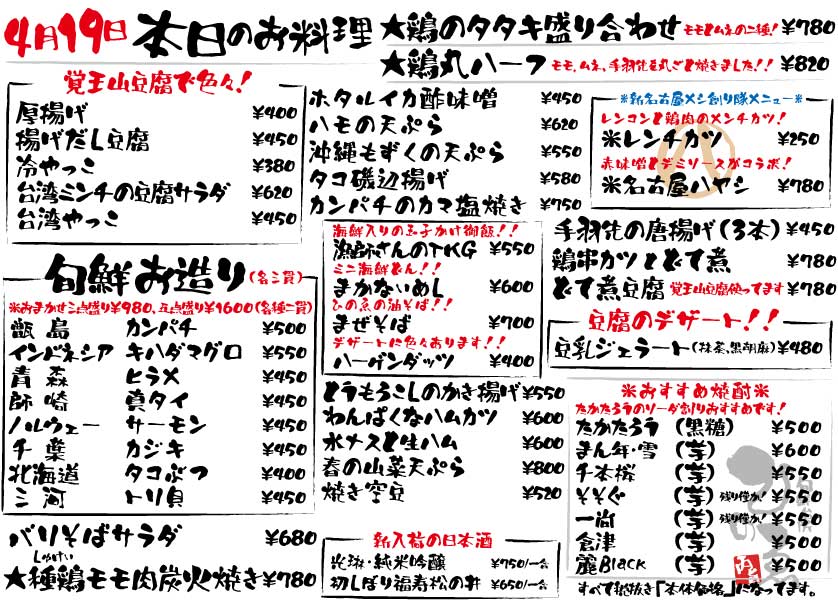 4月19日 本日のお料理
★鶏のタタキ盛り合わせ モモとムネの二種! ¥780
★鶏丸ハーフ モモ、ムネ、手羽先を丸ごと焼きました!! ¥820
覚王山豆腐で色々!
厚揚げ ¥400
揚げだし豆腐 ¥450
冷やっこ ¥380
台湾ミンチの豆腐サラダ ¥620
台湾やっこ ¥450
旬鮮お造り(各三貫)
※おまかせ三点盛り¥980、五点盛り¥1600(各種二貫)
甑島 カンパチ ¥500
インドネシア キハダマグロ ¥550
青森 ヒラメ ¥450
師崎 真タイ ¥450
ノルウェー サーモン ¥450
千葉 カジキ ¥450
北海道 タコぶつ ¥400
三河 トリ貝 ¥450
バリそばサラダ ¥680
しゅけい
★種鶏モモ肉炭火焼き ¥780
ホタルイカ酢味噌 ¥450
ハモの天ぷら ¥620
沖縄もずくの天ぷら ¥550
タコ磯辺揚げ ¥580
カンパチのカマ塩焼き ¥750
海鮮入りの玉子かけ御飯!!
漁師さんのTKG ¥550
ミニ海鮮どん!!
まかないめし ¥600
ひの魚の油そば!!
まぜそば ¥700
デザートに色々あります!!
ハーゲンダッツ ¥400
とうもろこしのかき揚げ ¥550
わんぱくなハムカツ ¥600
水ナスと生ハム ¥600
春の山菜天ぷら ¥800
焼き空豆 ¥520
新入荷の日本酒
光琳・純米吟醸 ¥750/一合
初しぼり福寿松の井 ¥650/一合
※新名古屋メシ創り隊メニュー※
レンコンと鶏肉のメンチカツ!
※レンチカツ ¥250
赤味噌とデミソースがコラボ!
※名古屋ハヤシ ¥780
手羽先の唐揚げ(3本) ¥450
鶏串カツとどて煮 ¥780
どて煮豆腐 覚王山豆腐使ってます ¥780
豆腐のデザート!!
豆乳ジェラート(抹茶、黒胡麻) ¥480
※おすすめ焼酎※
たかたろうのソーダ割りおすすめです!
たかたろう (黒糖) ¥500
まん年・雪 (芋) ¥600
千本桜 (芋) ¥550
そそぐ (芋) 残り僅か! ¥550
一尚 (芋) 残り僅か! ¥550
倉津 (芋) ¥500
麗Black (芋) ¥500
すべて税抜き「本体価格」になってます。